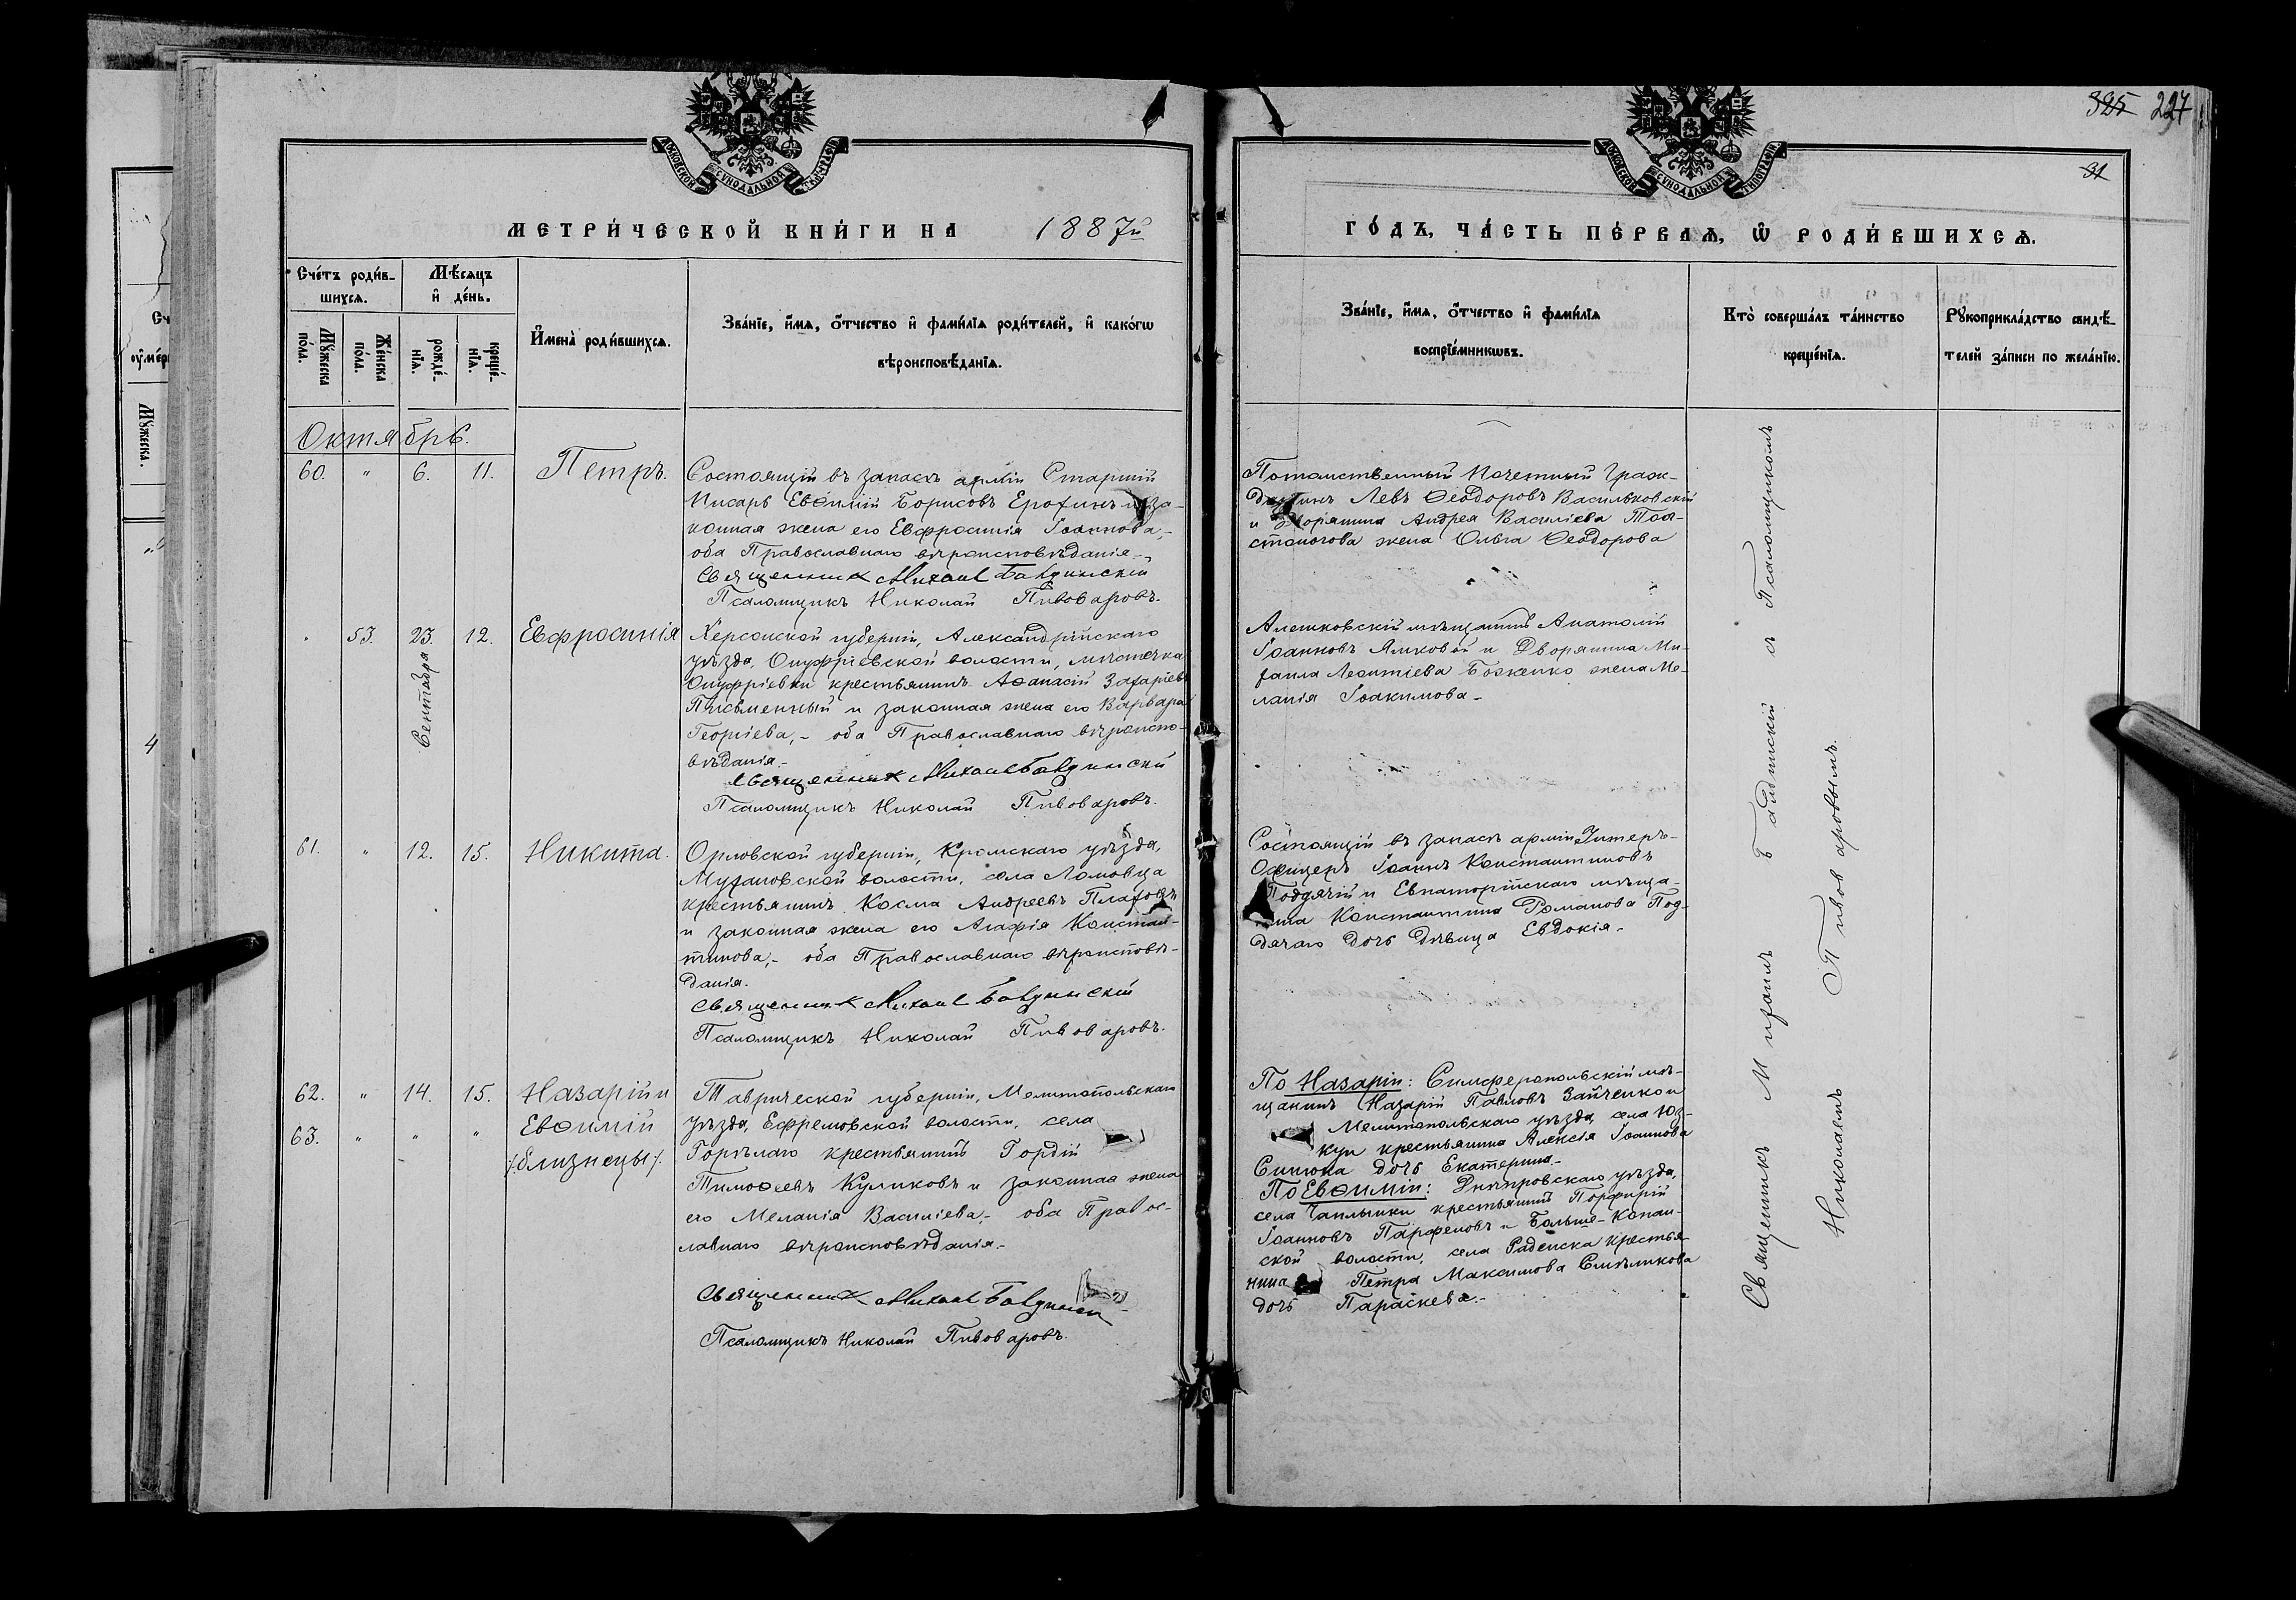 385 227
31
МОСКОВСКОЙ СѴНОДАЛЬНОЙ ТИПОГРАФІИ
МОСКОВСКОЙ СѴНОДАЛЬНОЙ ТИПОГРАФІИ
МЕТРИ́ЧЕСКОЙ КНИ́ГИ НА 1887й
ГО́ДЪ, ЧА́СТЬ ПЕ́РВАѦ, Ѡ҆ РОДИ́ВШИХСѦ.
Сче́тъ роди́в-
шихсѧ.
Мѣ́сѧцъ
и҆ де́нь.
Мꙋ́жеска
по́ла.
Же́нска
по́ла.
рожде́-
нїѧ.
креще́-
нїѧ.
И҆мена̀ роди́вшихсѧ.
Зва́нїе, и҆́мѧ, ѻ҆́тчество и҆ фамі́лїѧ роди́телей, и҆ како́гѡ
вѣроисповѣ́данїѧ.
Зва́нїе, и҆́мѧ, ѻ҆́тчество и҆ фамі́лїѧ
воспрїе́мникѡвъ.
Кто̀ соверша́лъ та́инство
креще́нїѧ.
Рꙋкоприкла́дство свидѣ́-
телей за́писи по жела́нїю.
Октябрь.
60. " 6. 11. Петръ.
Состоящій въ запасѣ арміи Старшій
Писарь Евѳимій Борисовъ Ерохинъ и за-
конная жена его Евфросинія Іоаннова,-
оба Православнаго вѣроисповѣданія.-
Священник Михаил Бавдинскій
Псаломщикъ Николай Пивоваровъ.
Потомственный Почетный Граж-
данинъ Левъ Ѳеодоровъ Васильковскій
и Дворянина Андрея Василіева Тол-
стоногова жена Ольга Ѳеодорова
" 53. 23. 12. Евфросинія
Сентября
Херсонской губерніи, Александрійскаго
уѣзда, Онуфріевской волости, мѣстечка
Онуфріевки крестьянинъ Аѳанасій Захаріевъ
Письменный и законная жена его Варвара
Георгіева,- оба Православнаго вѣроиспо-
вѣданія.-
Священник Михаил Бавдинскій
Псаломщикъ Николай Пивоваровъ.
Алешковскій мѣщанинъ Анатолій
Іоанновъ Яшковой и Дворянина Ми-
хаила Леонтіева Боженко жена Ме-
ланія Іоакимова -
61. " 12. 15. Никита.
Орловской губерніи, Кромскаго уѣзда,
Мухановской волости, села Ломовца
крестьянинъ Косма Андреевъ Плаховъ
и законная жена его Агафія Констан-
тинова,- оба Православнаго вѣроисповѣ-
данія.
Священник Михаил Бавдинскій
Псаломщикъ Николай Пивоваровъ.
Состоящій въ запасѣ арміи Унтеръ-
Офицеръ Іоаннъ Константиновъ
Поддячій и Евпаторійскаго мѣща-
нина Константина Романова Под-
дячаго дочь дѣвица Евдокія.-
62. " 14. 15. Назарій и
63. " " " Евѳимій
/:близнецы:/.
Таврической губерніи, Мелитопольскаго
уѣзда, Ефремовской волости, села
Горѣлаго крестьянинъ Гордій
Тимоѳеевъ Куликовъ и законная жена
его Меланія Василіева,- оба Правос-
лавнаго вѣроисповѣданія.-
Священник Михаил Бавдинскій
Псаломщикъ Николай Пивоваровъ.
По Назаріи: Симферопольскій мѣ-
щанинъ Назарій Павловъ Зайченко и
Мелитопольскаго уѣзда, села Юз-
куи крестьянина Алексія Іоаннова
Синюка дочь Екатерина.-
По Евѳиміи: Днѣпровскаго уѣзда,
села Чаплынки крестьянинъ Порфирій
Іоанновъ Парфеновъ и Больше-Копан-
ской волости, села Раденска крестья-
нина Петра Максимова Смѣликова
дочь Параскева.-
Священникъ Михаилъ Бавдинскій съ Псаломщикомъ
Николаемъ Пивоваровымъ.